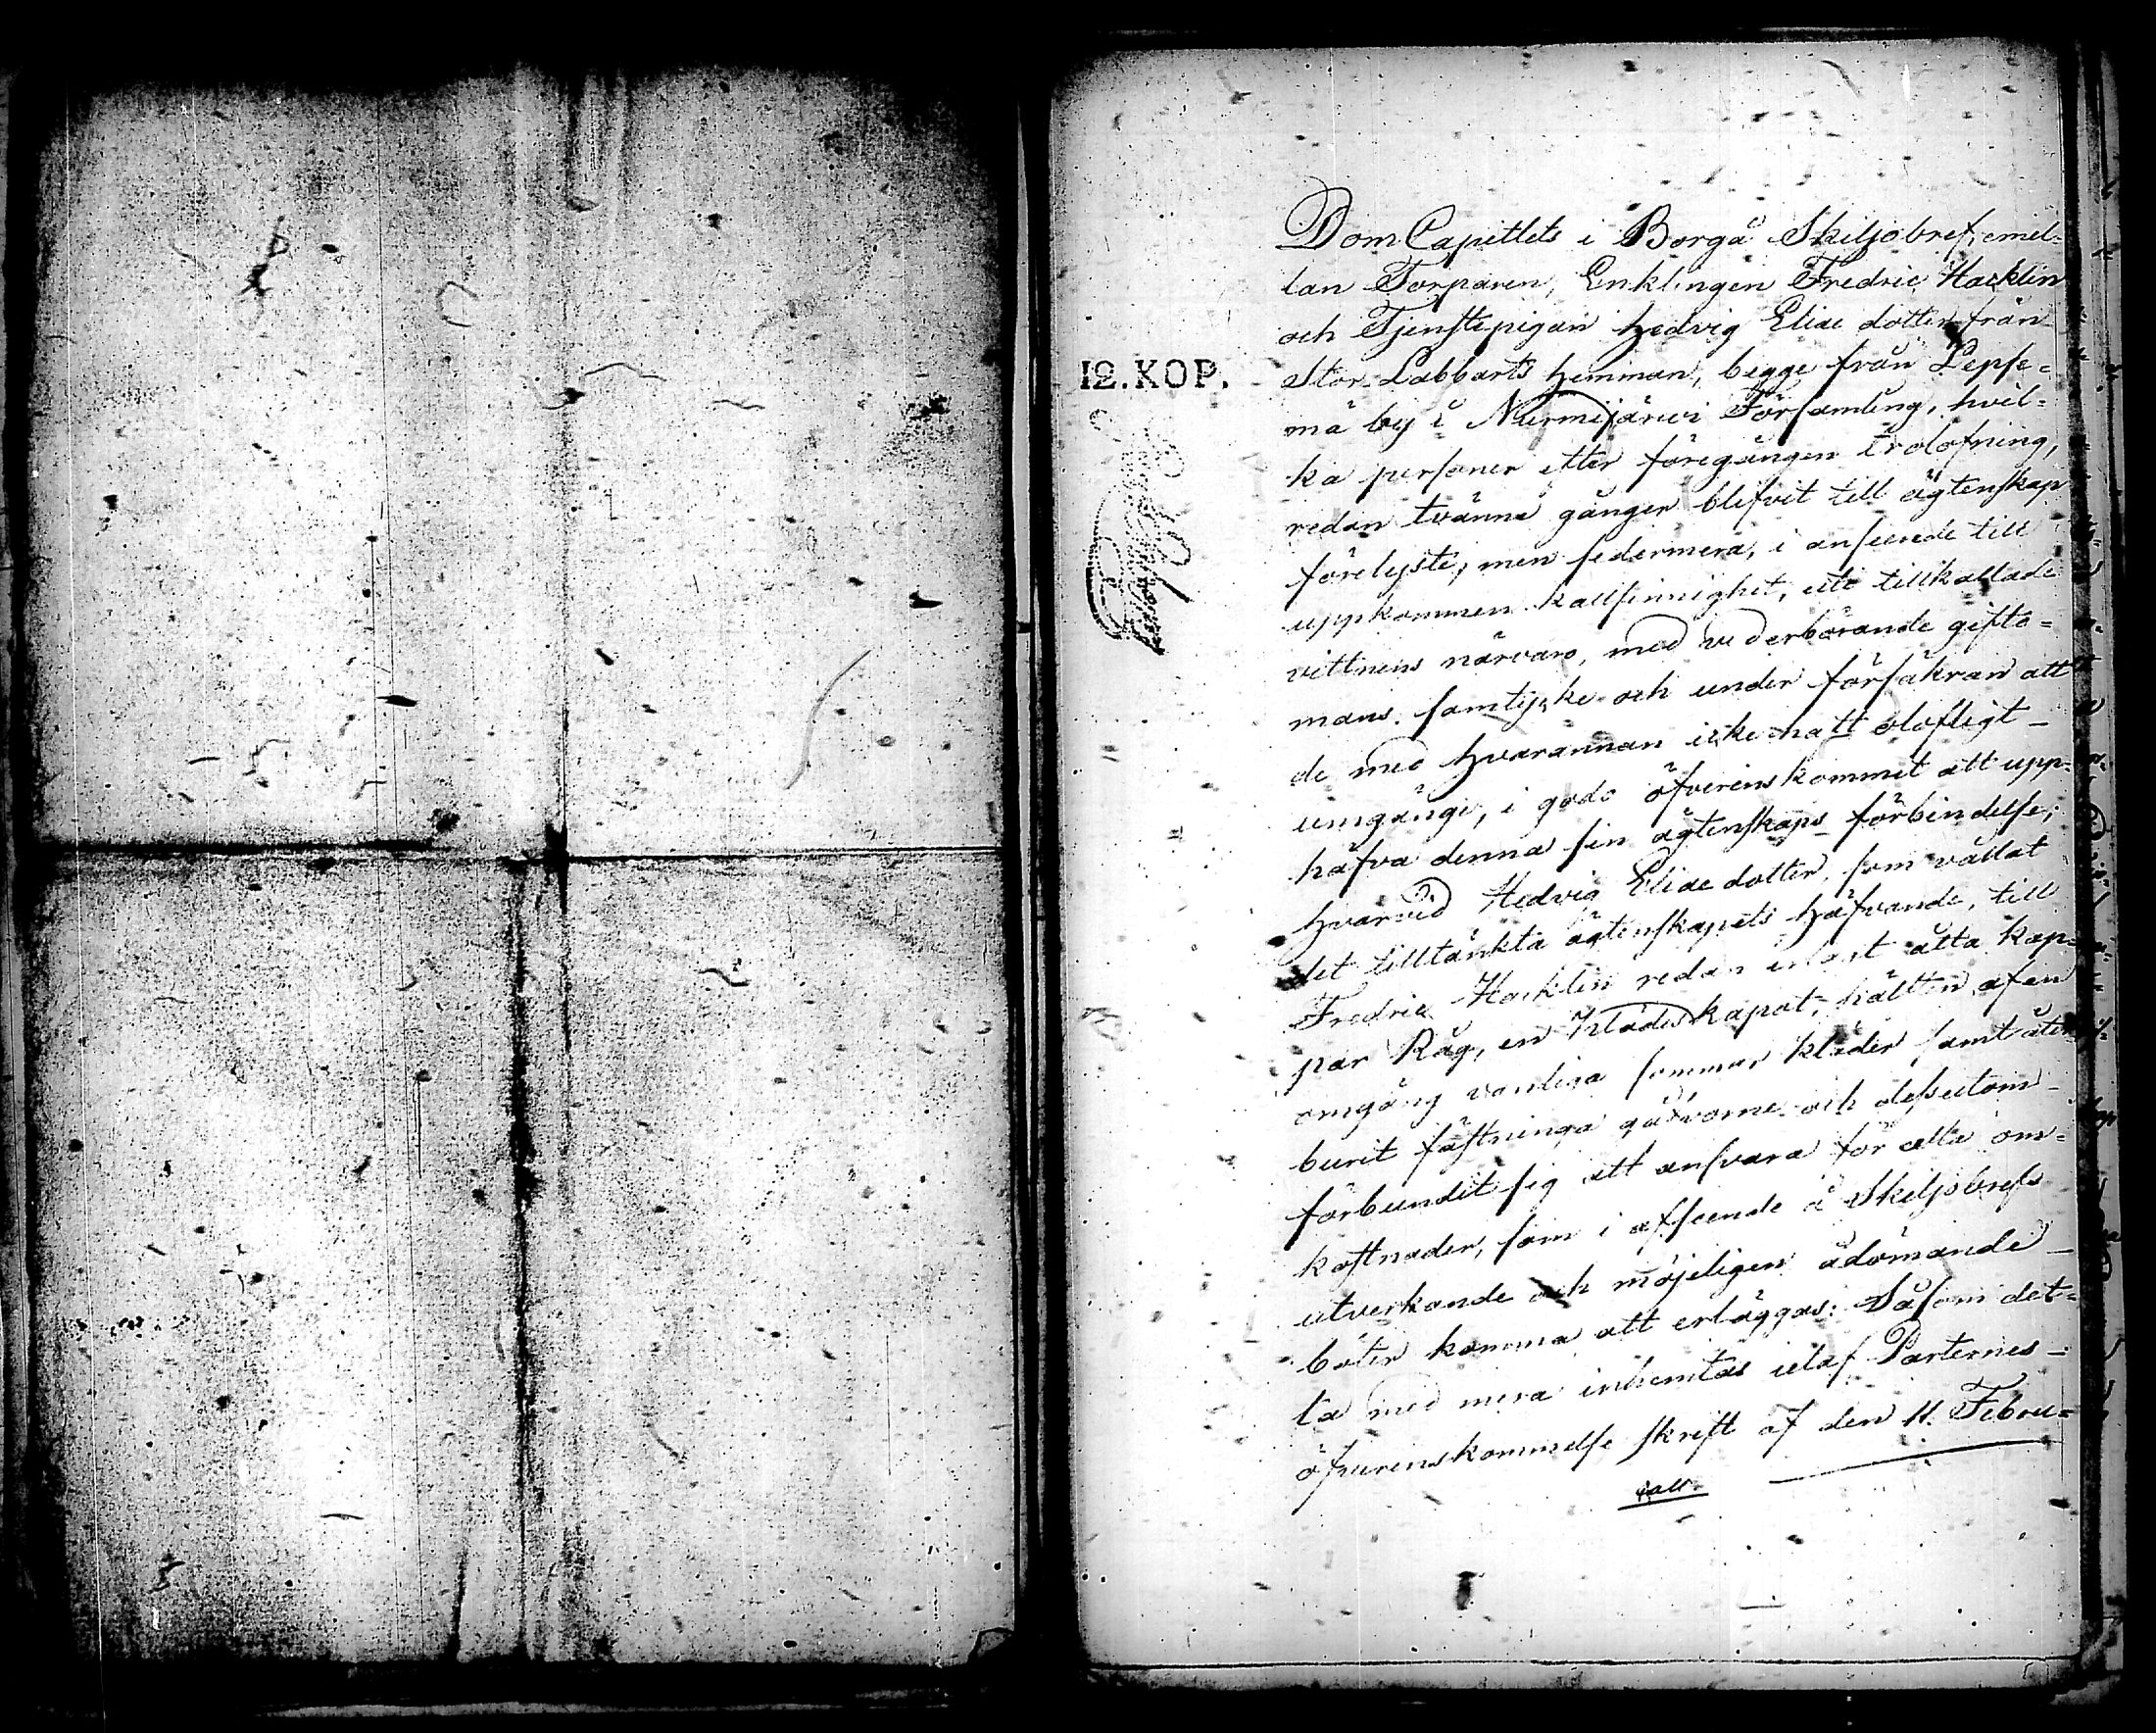 12. KOP.
Dom Capitlets i Borgå Skiljobref, emel-
lan Torparen, Enklingen Fredric Hacklin
och Tjenstepigan Hedvig Eliae dotter från
Stor Labbarts hemman, begge från Lepse-
mä by i Nurmijärvi Församling, hvil-
ka personer efter föregången trolofning,
redan tvänne gånger blifvit till ägtenskap
förelyste, men sedermera, i anseende till
uppkommen kallsinnighet, uti tillkallade
vittnens närvaro, med vederbörande gifto-
mans samtycke och under försäkran att
de med hvarannan icke haft olofligt
umgänge, i godo öfverenskommit att upp-
häfva denna sin ägtenskaps förbindelse;
hvarvid Hedvig Eliae dotter, som vållat
det tilltänkta ägtenskapets häfvande, till
Fredric Hacklin redan erlagt åtta kap-
par Råg, en Klädes kapot, hälften af en
omgång vanliga sommar kläder samt åter-
burit fästninga gåfvorne och dessutom
förbundit sig att ansvara för alla om-
kostnader, som i afseende å Skiljobrefs
utverkande och möjeligen ådömande
böter komma att erläggas: Såsom det-
ta med mera inhemtas utaf Parternes
öfverenskommelse skrift af den 11. Febru-